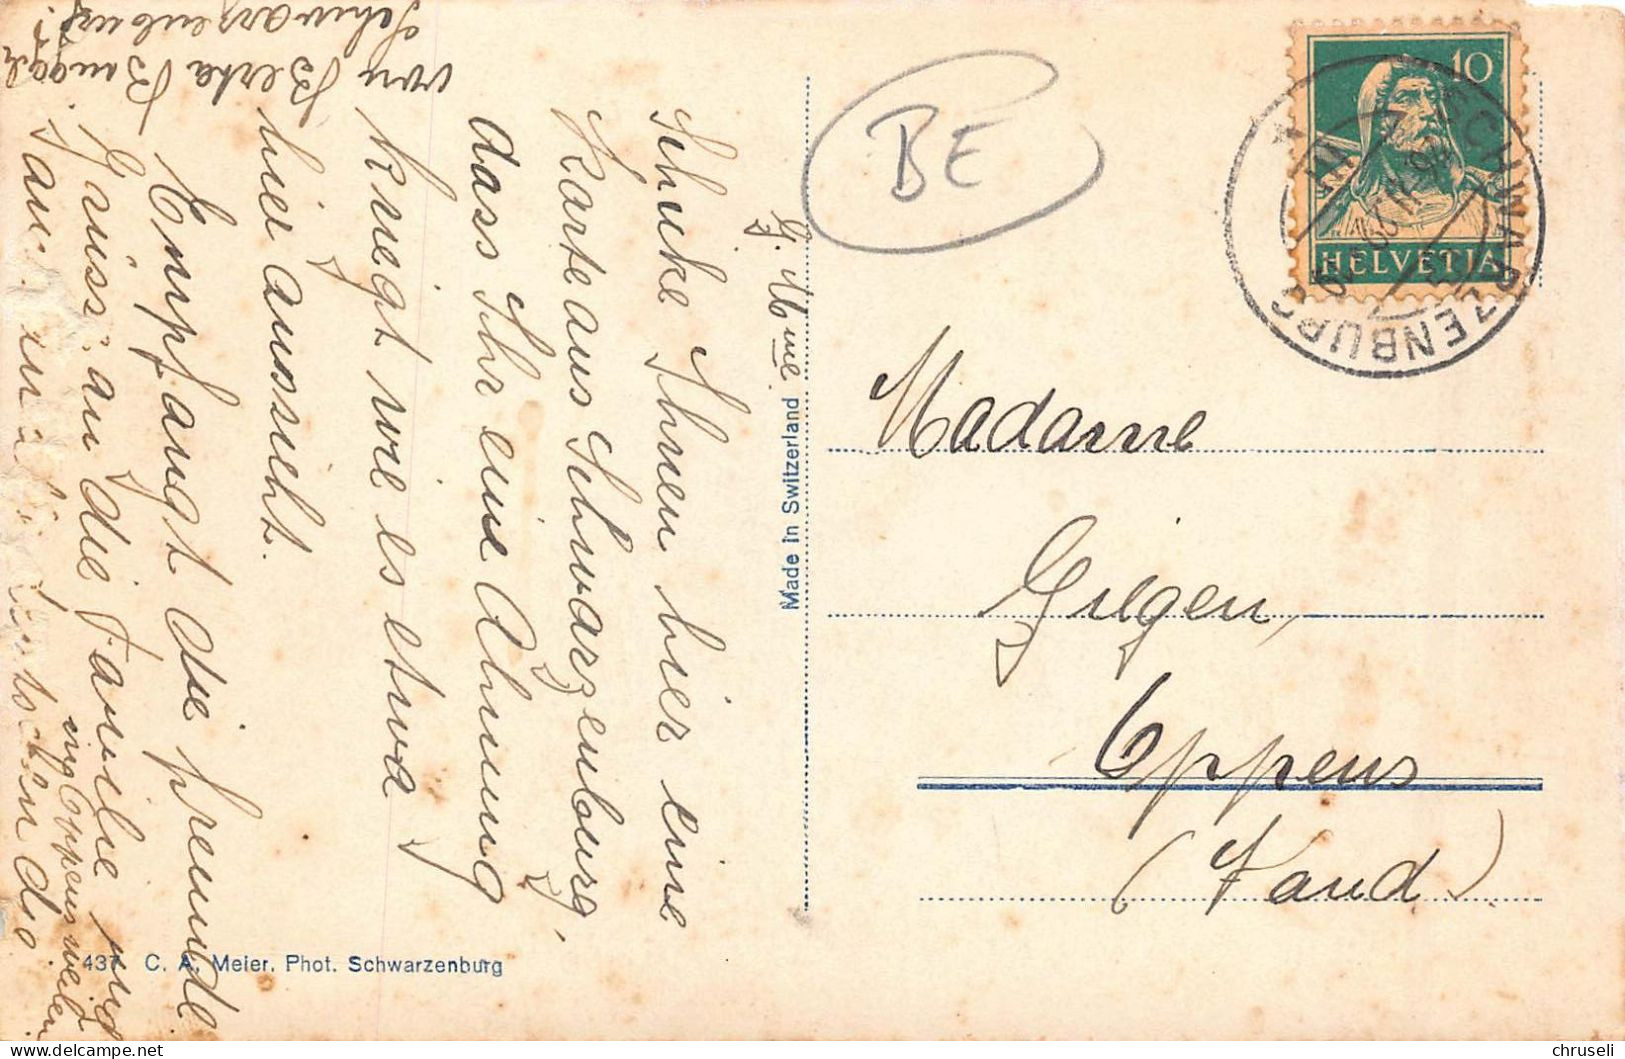 G. Mme
Schicke Ihnen hier eine
Karte aus Schwarzenburg,
dass Ihr eine Ahnung
kriegt wie es etwa
hier aussieht.
Empfangt die freundl
Grüss. an die Familie und
von Berta
Schwarzenburg.
BE
10
HELVETIA
SCHWARZENBURG
Made in Switzerland
Madame
Gilgen,
Oppens
(Vaud)
437 C. A. Meier, Phot. Schwarzenburg
chruseli